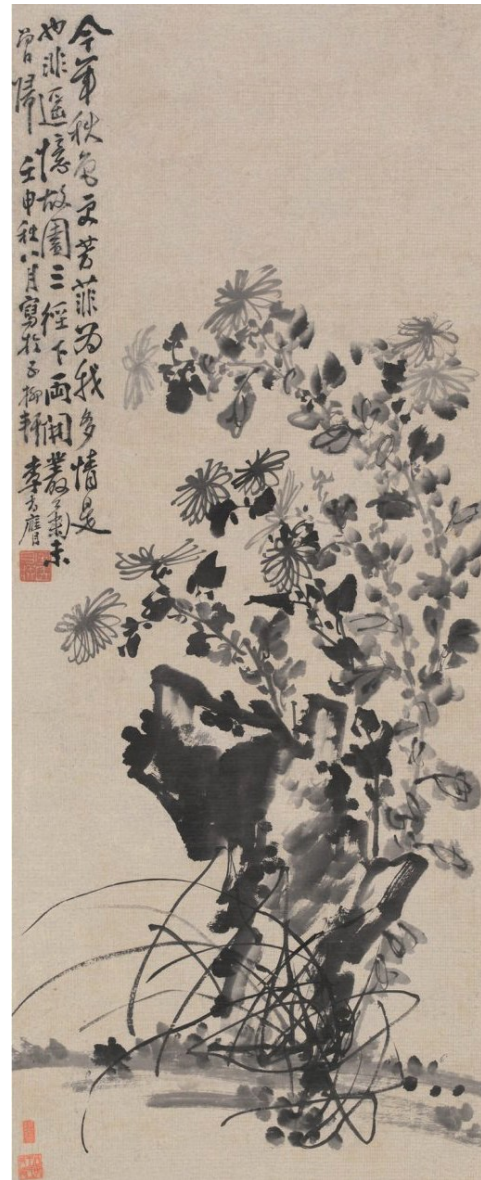 今年秋色更芳菲為我多情是
也非遙憶故園三徑下兩開叢菊未
曾歸 壬申秋八月寫於柳軒 李方膺